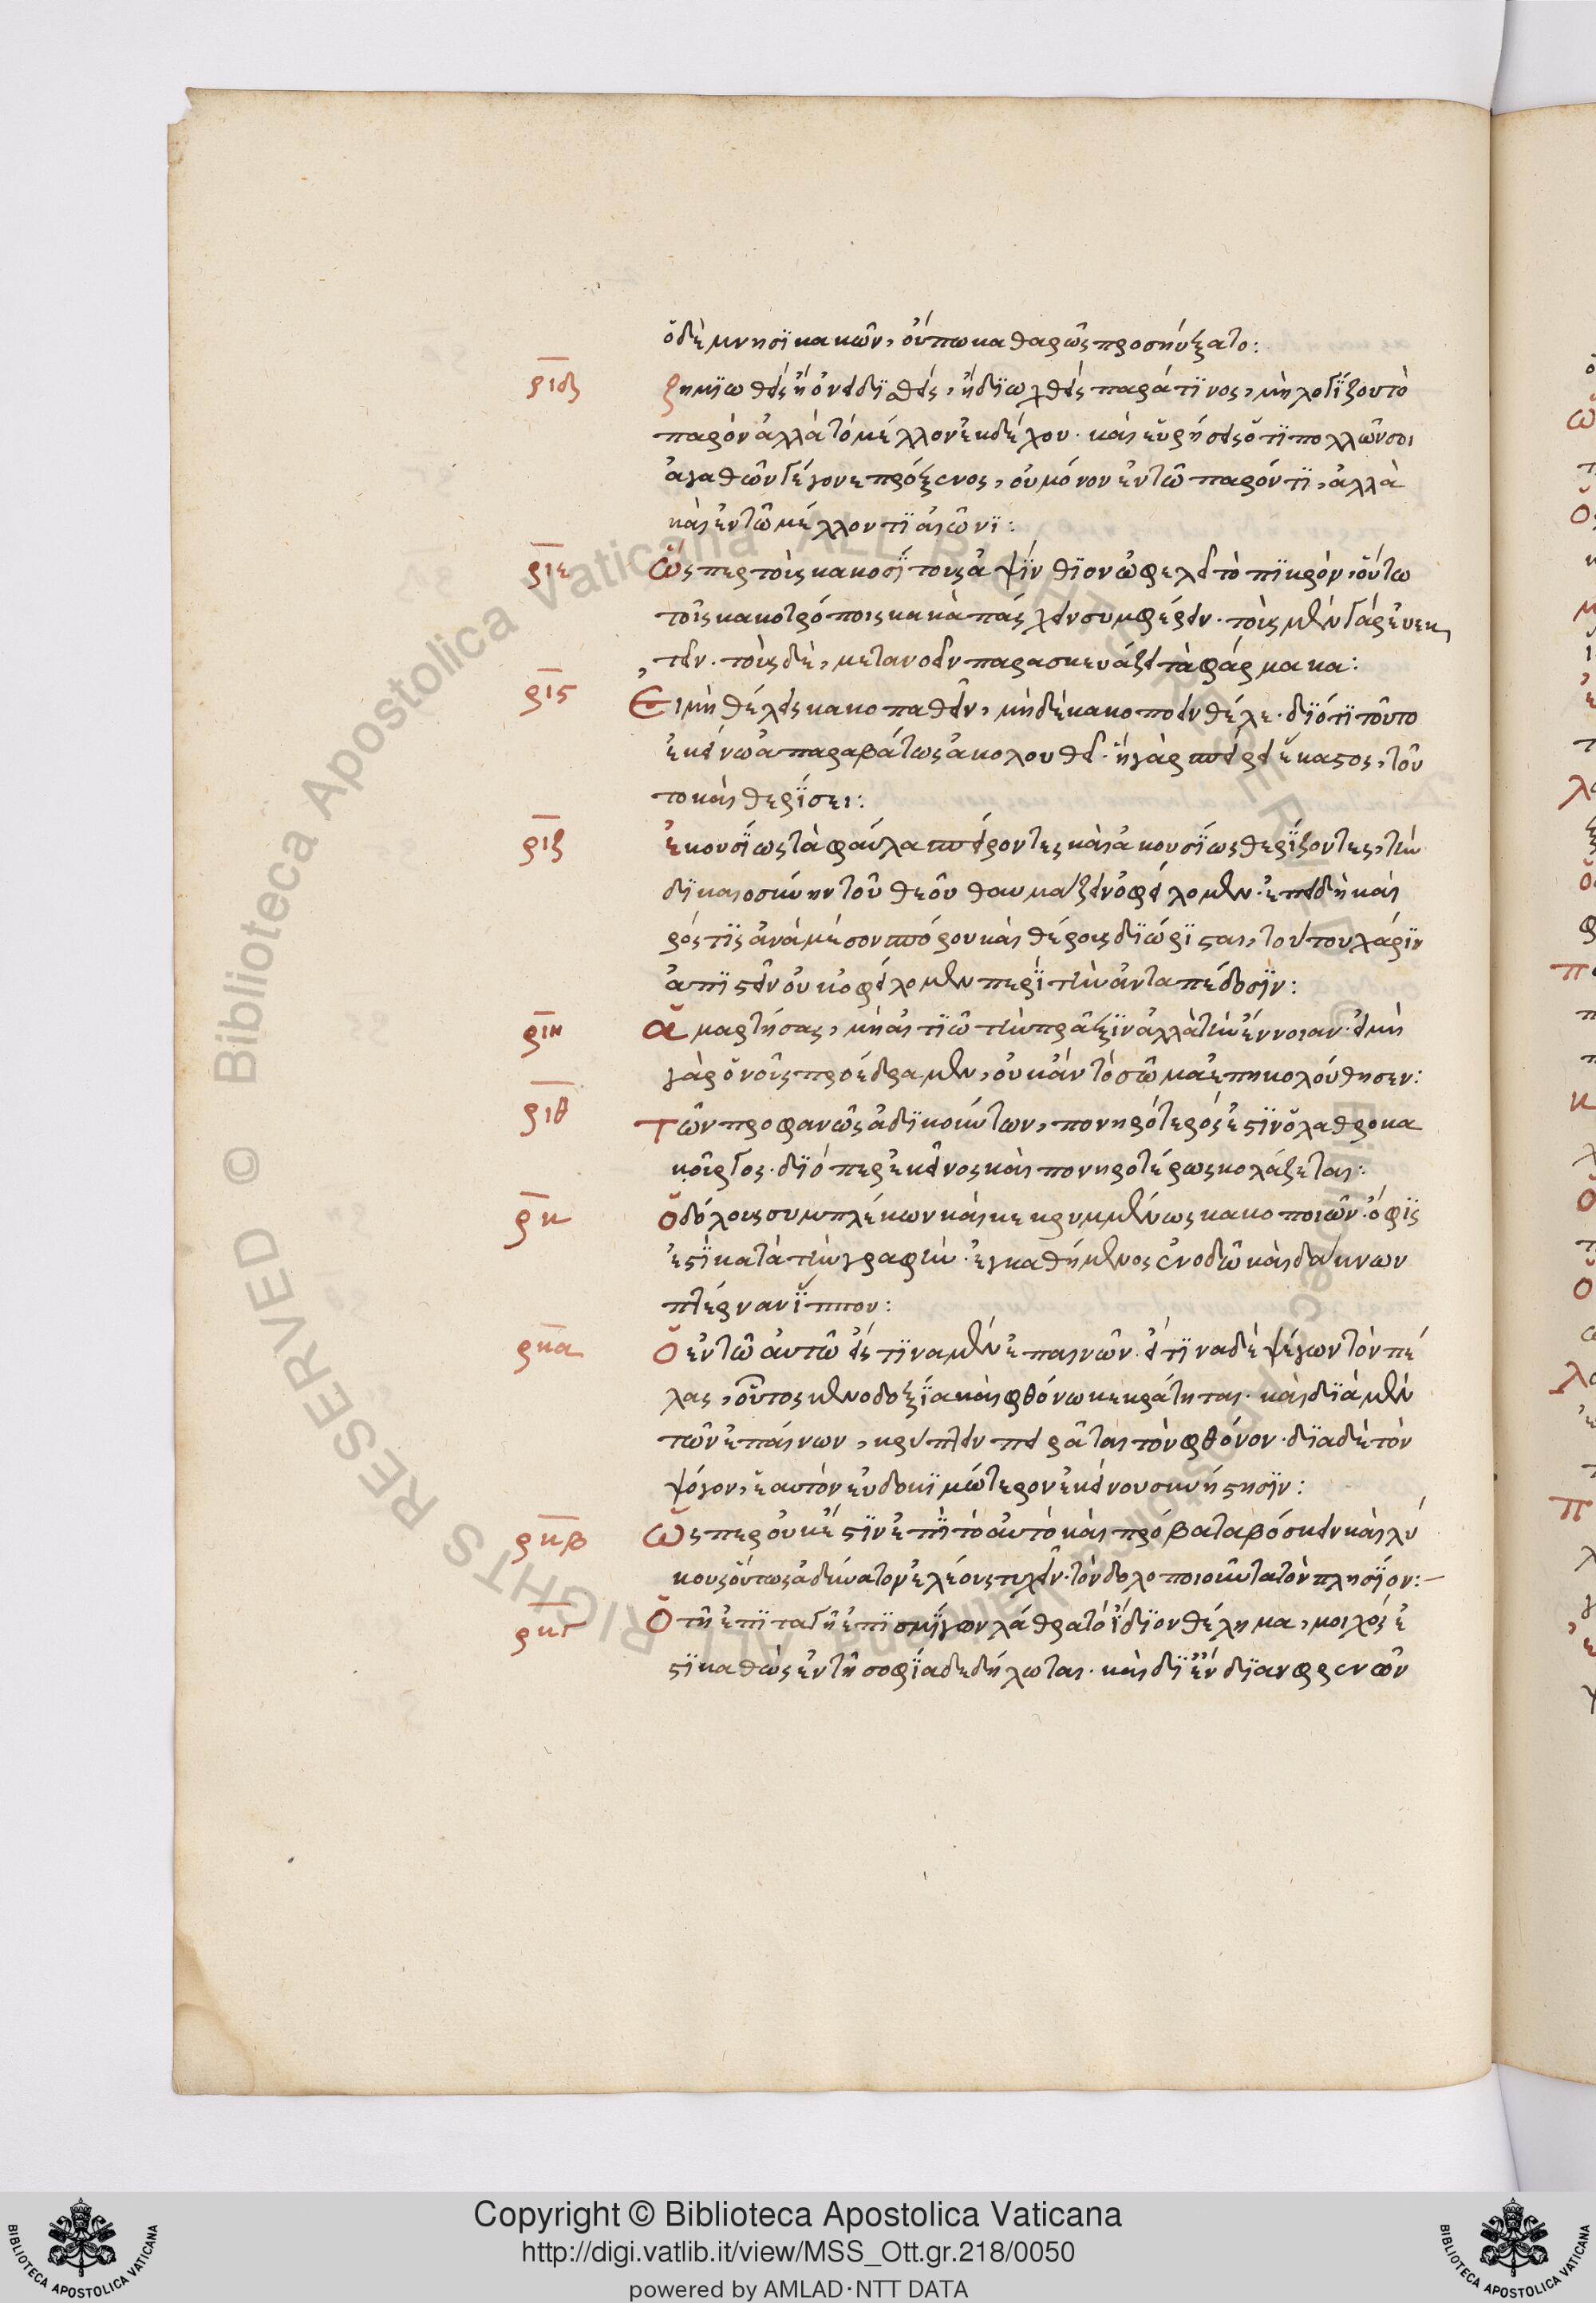 ὁ δὲ μνησικακῶν, οὔπω καθαρῶς προσηύξατο:
ριδ ζημιωθεὶς ἢ ὀνειδισθεὶς, ἢ διωχθεὶς παρά τινος, μὴ λογίζου τὸ
παρὸν ἀλλὰ τὸ μέλλον ἐκδέχου· καὶ εὑρήσεις ὅτι πολλῶν σοι
ἀγαθῶν γέγονε πρόξενος, οὐ μόνον ἐν τῶ παρόντι, ἀλλὰ
καὶ ἐν τῶ μέλλοντι αἰῶνι:
ριε Ὥσπερ τοῖς κακοσίτοις ἀψίνθιον ὠφελεῖ τὸ πικρὸν, οὕτω
τοῖς κακοτρόποις κακὰ πάσχειν συμφέρειν· τοῖς μὲν γὰρ εὐεκ
τεῖν· τοῖς δὲ, μετανοεῖν παρασκευάζει τὰ φάρμακα:
ρις Εἰ μὴ θέλεις κακοπαθεῖν, μὴ δὲ κακοποιεῖν θέλε· διότι τοῦτο
ἐκείνω ἀπαραβάτως ἀκολουθεῖ· ἢ γὰρ σπείρει ἕκαστος, τοῦ
το καὶ θερίσει:
ριζ ἑκουσίως τὰ φαύλα σπείροντες καὶ ἀκουσίως θερίζοντες, τὴν
δικαιοσύνην τοῦ θεοῦ θαυμάζειν ὀφείλομεν· ἐπειδὴ και
ρός τις ἀνὰ μέσον σπόρου καὶ θέρους διώρισται, τούτου χάριν
ἀπιστεῖν οὐκ ὀφείλομεν περὶ τὴν ἀνταπέδοσιν:
ριη Ἁμαρτήσας, μὴ αἰτιῶ τὴν πρᾶξιν ἀλλὰ τὴν ἔννοιαν· εἰ μὴ
γὰρ ὁ νοῦς προέδραμεν, οὐκ ἂν τὸ σῶμα ἐπηκολούθησεν:
ριθ Τῶν προφανῶς ἀδικούντων, πονηρότερός ἐστιν ὁ λαθροκα
κοῦργος· διό περ ἐκεῖνος καὶ πονηροτέρως κολάζεται:
ρκ Ὁ δόλοις συμπλέκων καὶ κεκρυμμένως κακοποιῶν· ὄφις
ἐστὶ κατὰ τὴν γραφὴν· ἐγκαθήμενος ἐν ὁδῶ καὶ δάκνων
πτέρναν ἵππου:
ρκα Ὁ ἐν τῶ αὐτῶ εἴς τινα μὲν ἐπαινῶν· εἴ τινα δὲ ψέγων τὸν πέ
λας, οὗτος κενοδοξία καὶ φθόνω κεκράτηται· καὶ διὰ μὲν
τῶν ἐπαίνων, κρύπτειν πειρᾶται τὸν φθόνον· διὰ δὲ τὸν
ψόγον, ἑαυτὸν εὐδοκιμώτερον ἐκείνου συνίστησιν:
ρκβ Ὥσπερ οὐκ ἔστιν ἐπὶ τὸ αὐτὸ καὶ πρόβατα βόσκειν καὶ λύ
κους οὕτως ἀδύνατον ἐλέους τυχεῖν· τὸν δολοποιοῦντα τὸν πλησίον:
ρκγ Ὁ τῆ ἐπιταγῆ ἐπισμίγων λάθρα τὸ ἴδιον θέλημα, μοιχός ἐ
στι καθὼς ἐν τῆ σοφία δεδήλωται· καὶ δι ἔνδιαν φρενῶν
Copyright © Biblioteca Apostolica Vaticana
http://digi.vatlib.it/view/MSS_Ott.gr.218/0050
powered by AMLAD·NTT DATA